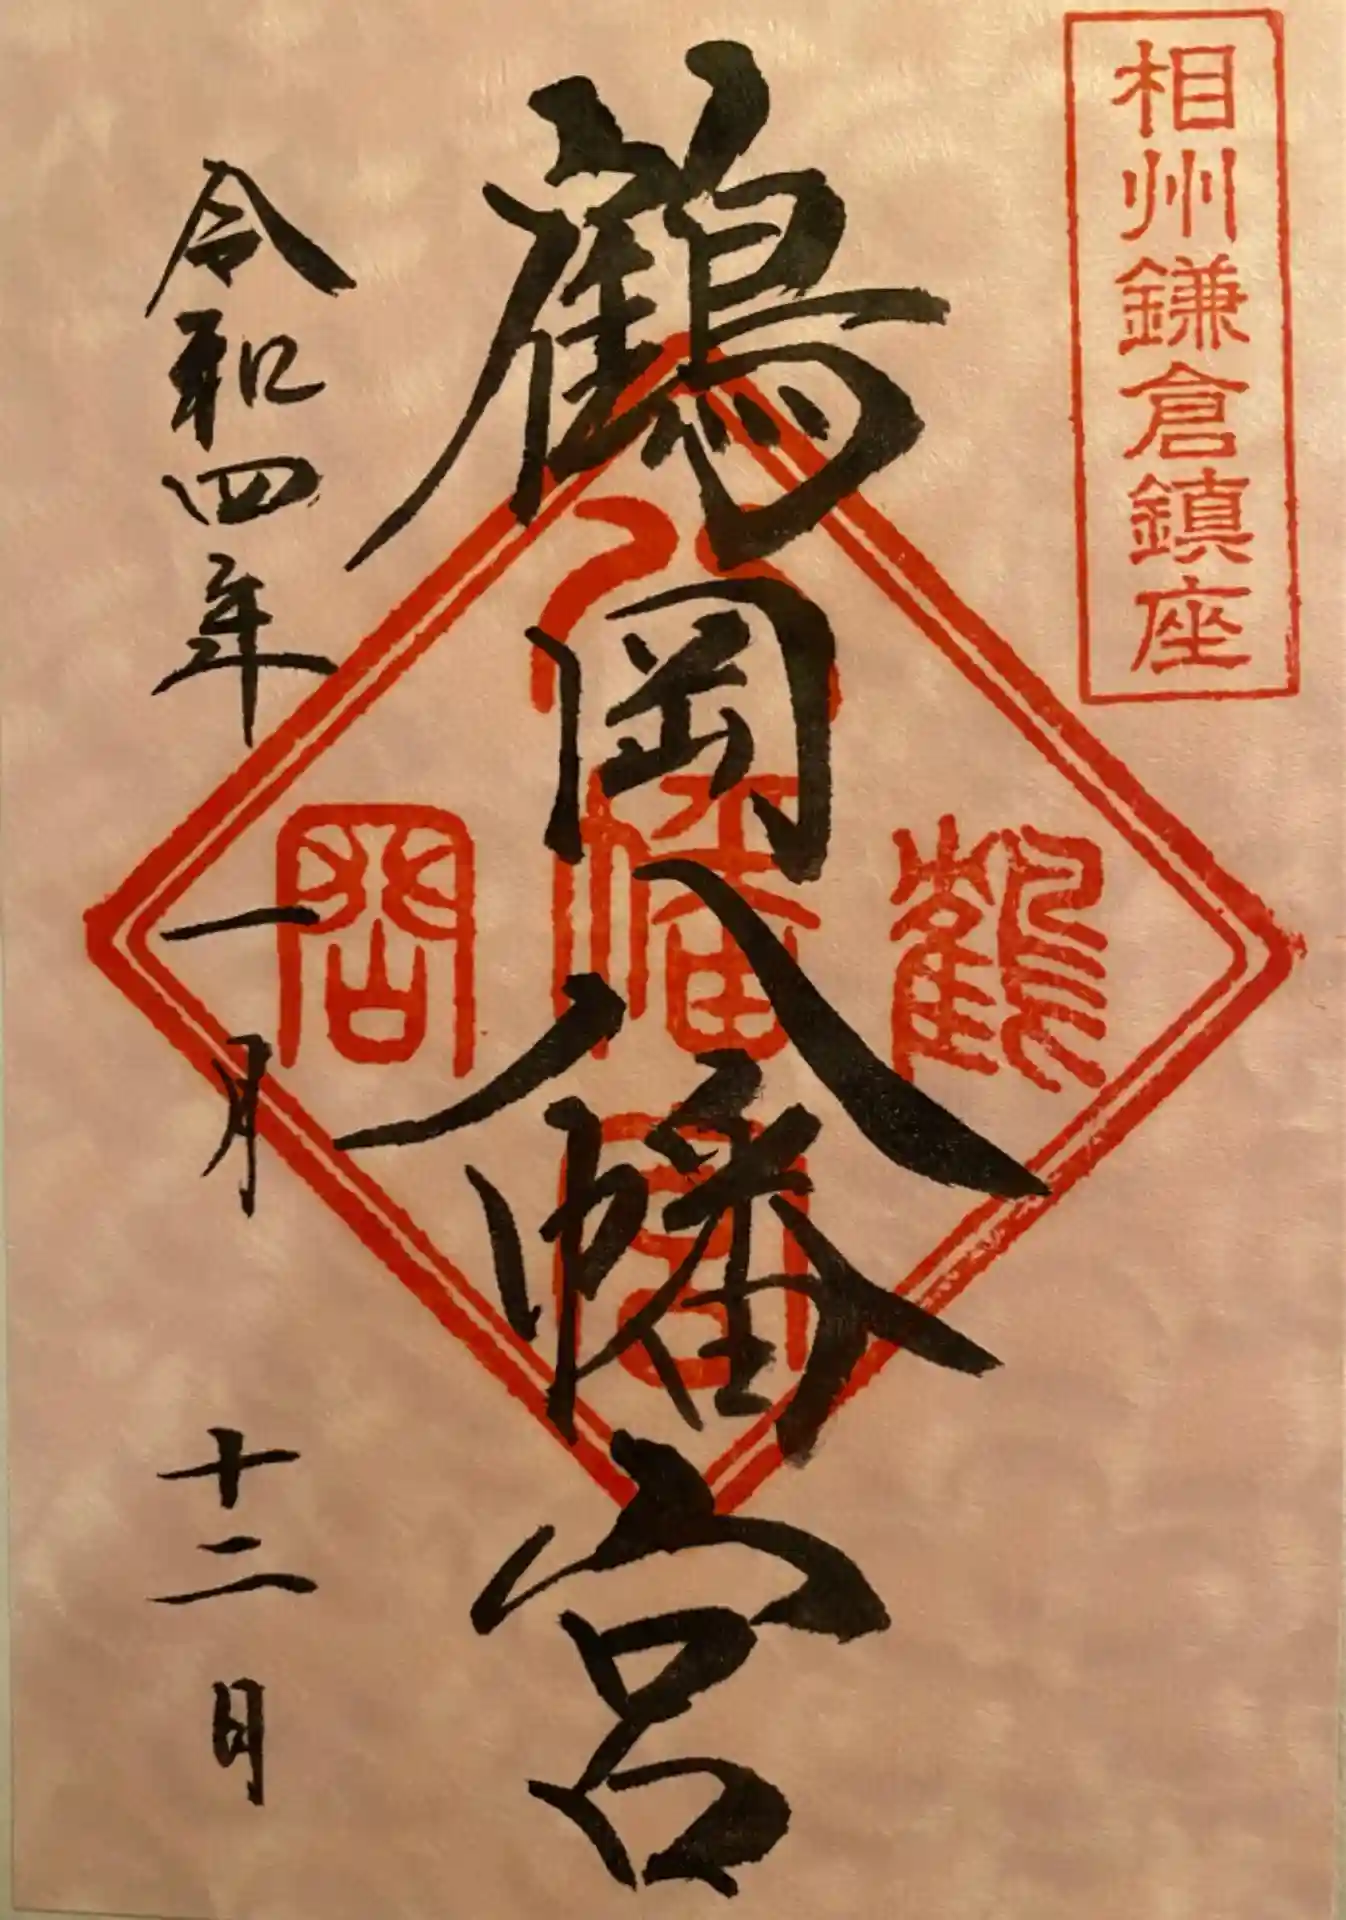 相州鎌倉鎮座
鶴岡八幡宮
鶴
八幡宮
岡
令和四年一月十二日